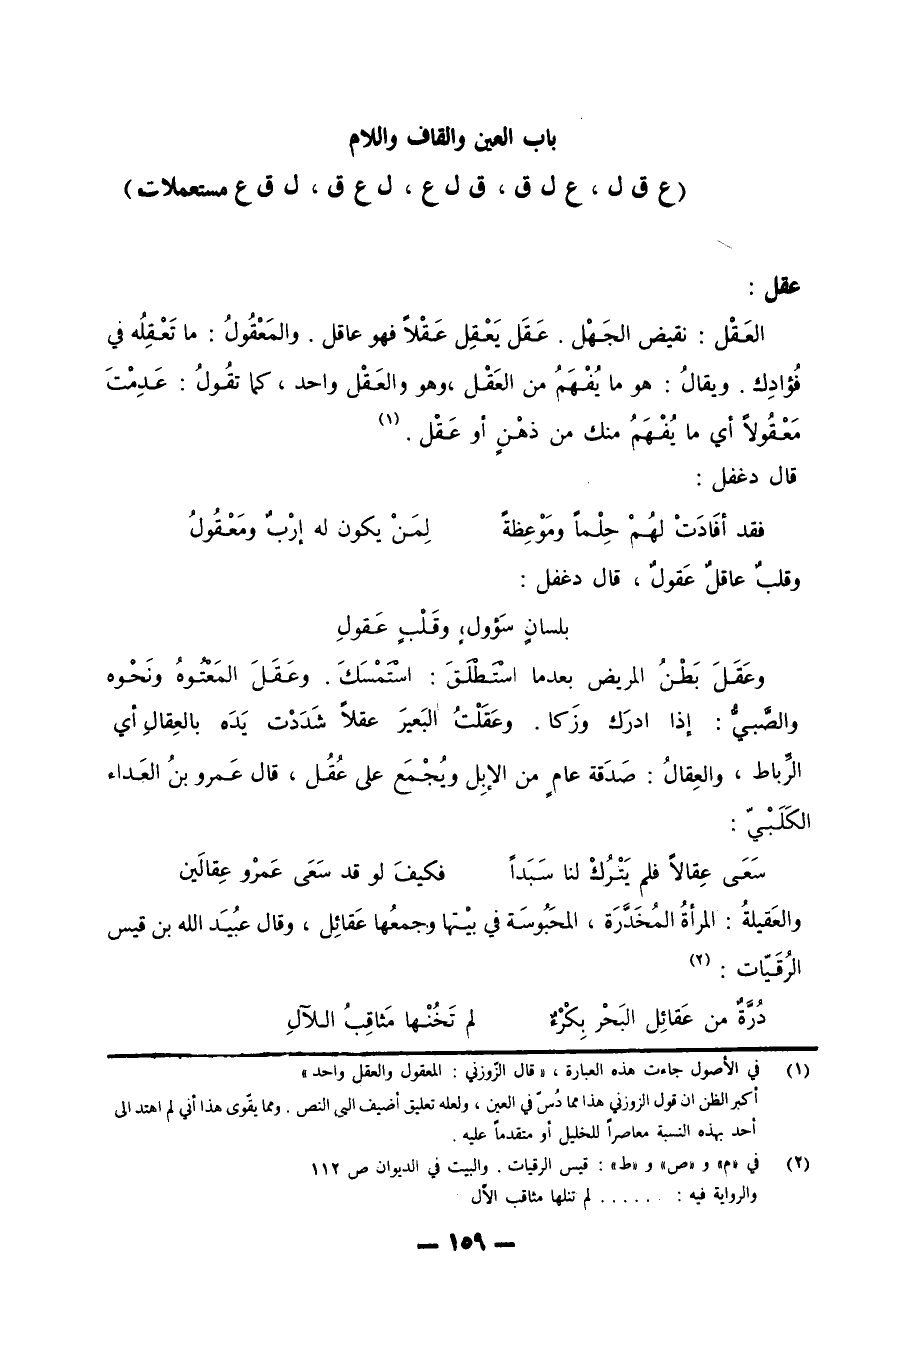 باب العين والقاف واللام
(ع ق ل ، ع ل ق ، ق ل ع ، ل ع ق ، ل ق ع مستعملات)
عقل :
العَقْل : نقيض الجَهْل . عَقَل يَعْقِل عَقْلاً فهو عاقل . والمَعْقُولُ : ما تَعْقِلُه في
فُؤادِك . ويقالُ : هو ما يُفْهَمُ من العَقْل ،وهو والعَقْل واحد ، كما تقُولُ : عَدِمْتَ
مَعْقُولاً أي ما يُفْهَمُ منك من ذهْنٍ أو عَقْل . (١)
قال دغفل :
فقد أفَادَتْ لهُمْ حِلْماً ومَوْعِظةً لِمَنْ يكون له إرْبٌ ومَعْقُولُ
وقلبٌ عاقلٌ عَقولٌ ، قال دغفل :
بلسانٍ سَؤولٍ، وقَلْبٍ عَقولِ
وعَقَلَ بَطْنُ المريض بعدما اسْتَطْلَقَ : اسْتَمْسَكَ . وعَقَلَ المَعْتُوهُ ونَحْوه
والصَّبيُّ : إذا ادرَك وزَكا . وعَقَلْتُ البَعيرَ عقلاً شَدَدْت يَدَه بالعِقالِ أي
الرِّباط ، والعِقالُ : صَدَقة عامٍ من الإبِل ويُجْمَع على عُقُل ، قال عَمرو بنُ العَداء
الكَلَبْيّ :
سَعَى عِقالاً فلم يَتْرُكْ لنا سَبَداً فكيفَ لو قد سَعَى عَمرْو عِقالَين
والعَقيلةُ : المرأةُ المُخَدَّرَة ، المحَبُوسَة في بيْتها وجمعُها عَقائِل ، وقال عبُيَد الله بن قيس
الرُقَيّات : (٢)
دُرَّةٌ من عَقائِل البَحْر بِكْرٌ لم تَخُنْها مَثاقِبُ اللآلِ
(١) في الأصول جاءت هذه العبارة ، « قال الزّوزني : المعقول والعقل واحد »
أكبر الظن ان قول الزوزني هذا مما دُسّ في العين ، ولعله تعليق أضيف الى النص . ومما يقّوى هذا أني لم اهتد الى
أحد بهذه النسبة معاصراً للخليل أو متقدماً عليه .
(٢) في «م» و «ص» و «ط» : قيس الرقيات . والبيت في الديوان ص ١١٢
والرواية فيه : ...... لم تنلها مثاقب الأل
— ١٥٩ —